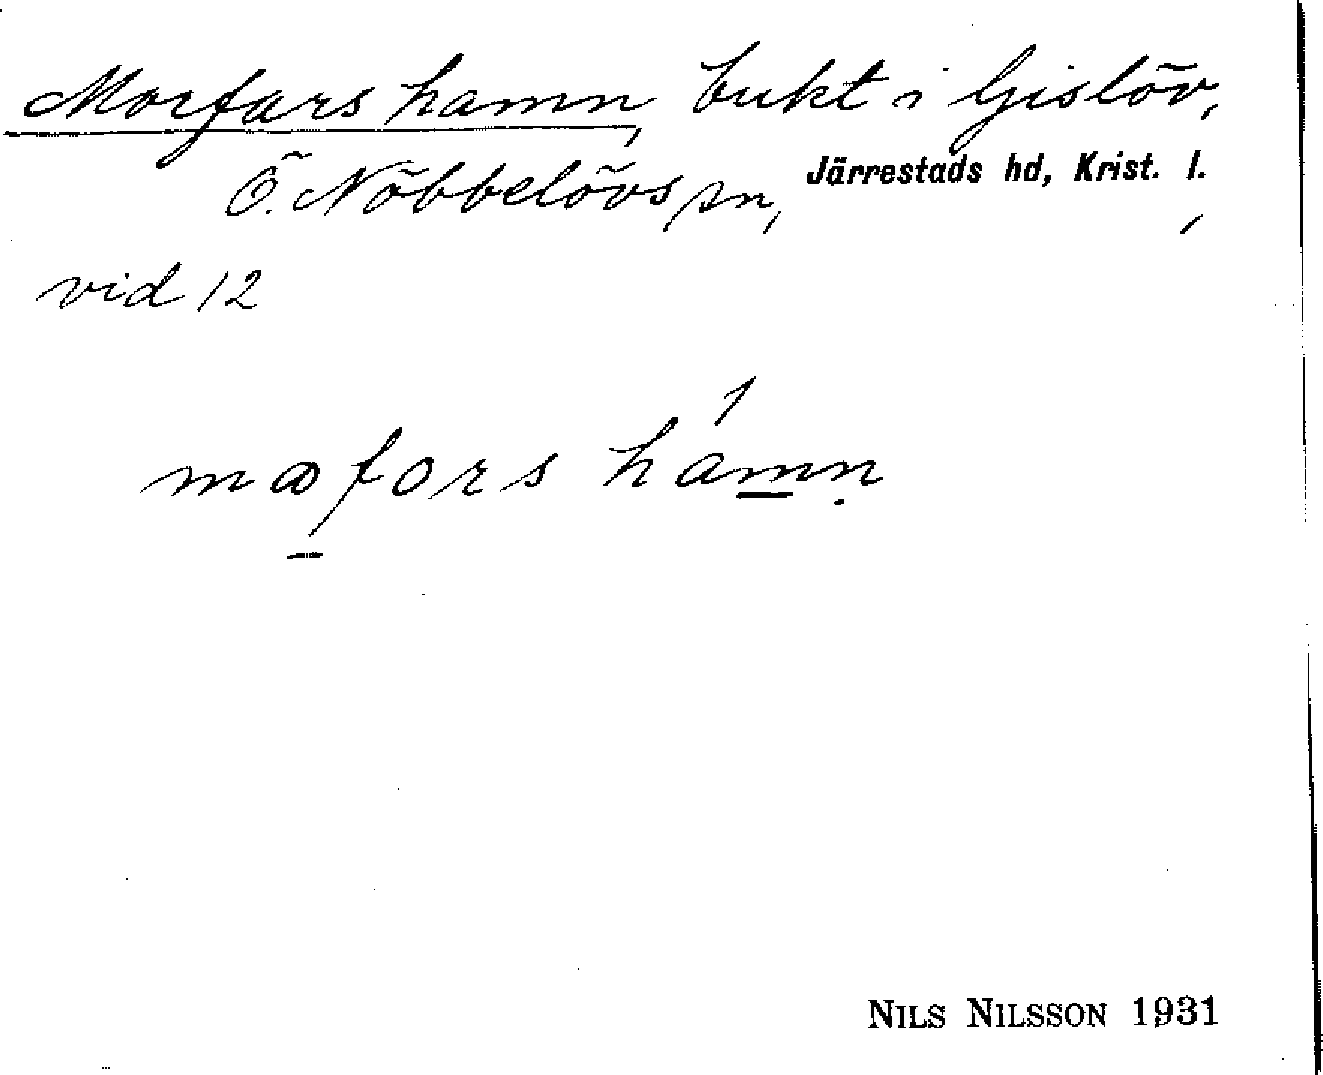 Morfars hamn, bukt i Gislöv,
Ö. Nöbbelövs sn, Järrestads hd, Krist. l.,
vid 12
mafors hamn
NILS NILSSON 1931